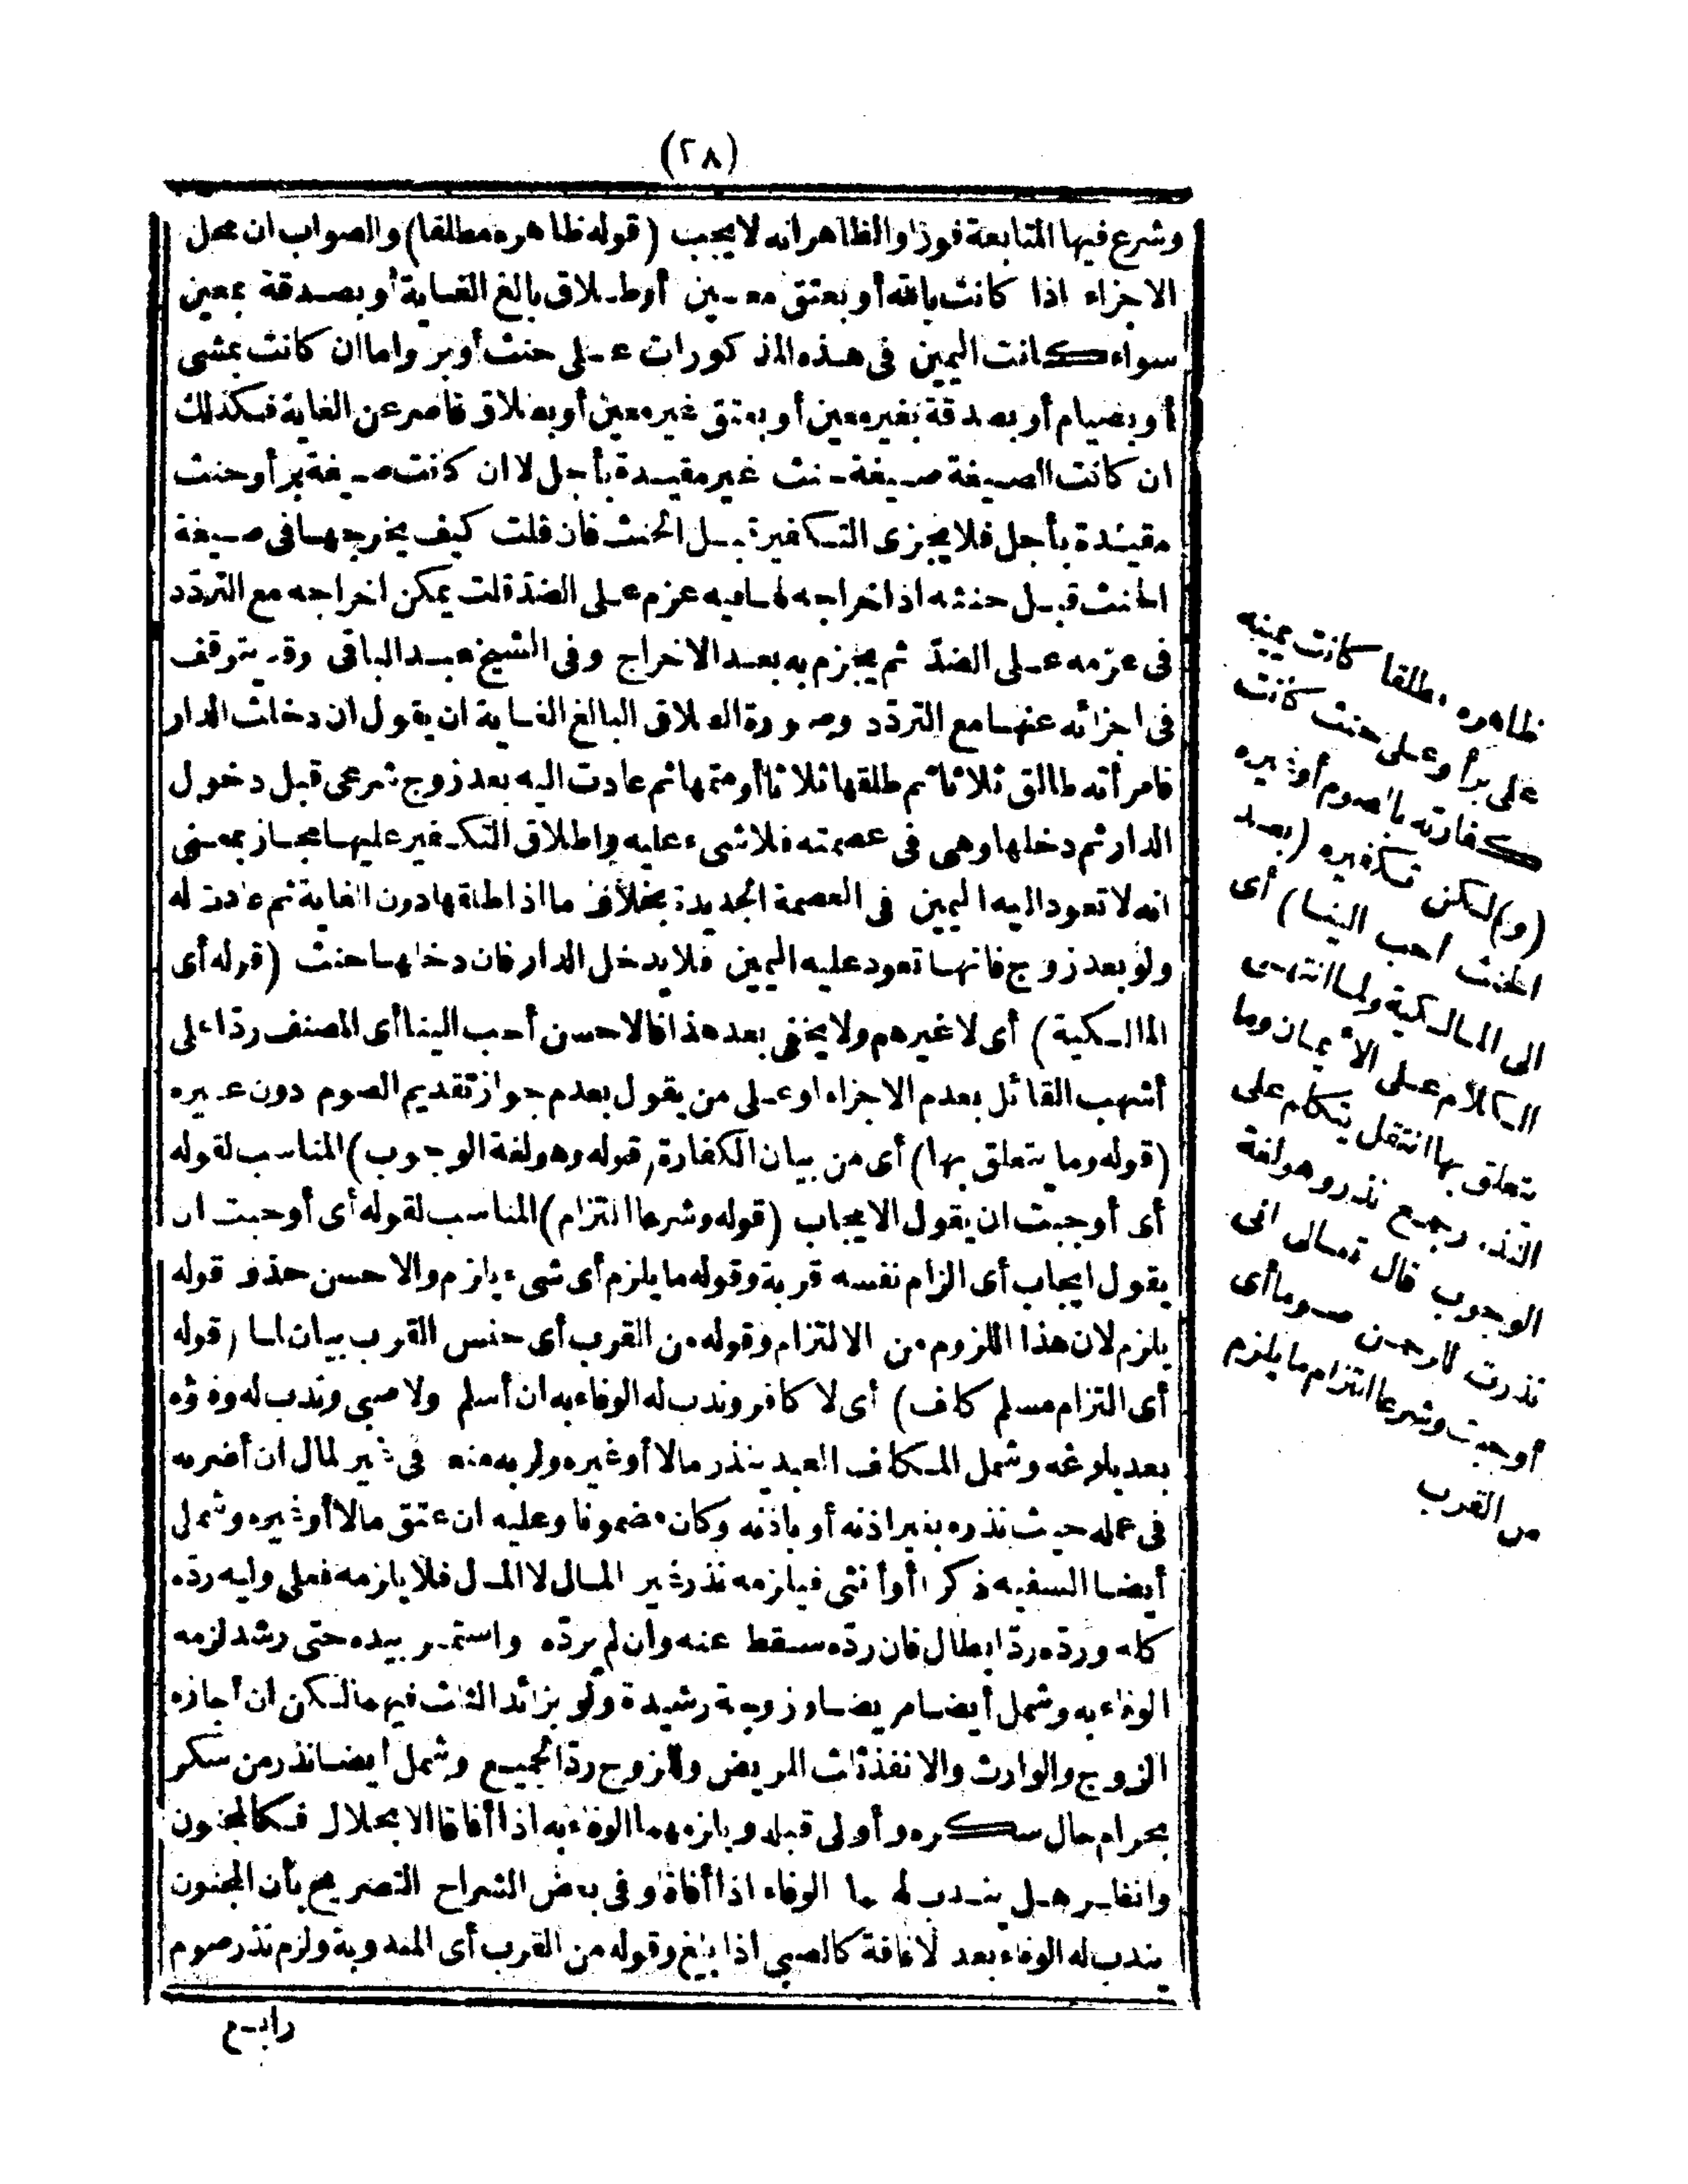 (٢٨)
وشرع فيها المتابعة فورا والظاهر انه لا يجب (قوله ظاهره مطلقا) والصواب ان محل
الاجزاء اذا كانت بالله أو بعتق معين أوطلاق بالغ الغاية أو بصدقة بمعين
سواء كانت اليمين فى هذه المذكورات على حنث أو بر واما ان كانت بمشى
أو بصيام أو بصدقة بغير معين أو بعتق غير معين أو بطلاق قاصر عن الغاية فكذلك
ان كانت الصيغة صيغة حنث غير مقيدة بأجل لا ان كانت صيغة بر أو حنث
مقيدة بأجل فلا يجزى التكفير قبل الحنث فان قلت كيف يخرجها فى صيغة
الحنث قبل حنثه اذ اخراجه لها فيه عزم على الضد قلت يمكن اخراجه مع التردد
فى عزمه على الضد ثم يجزم به بعد الاخراج وفى الشيخ عبد الباقى وقد يتوقف
فى اجزائه عنها مع التردد وصورة الطلاق البالغ الغاية ان يقول ان دخلت الدار
فامرأته طالق ثلاثا ثم طلقها ثلاثا أو متمها ثم عادت اليه بعد زوج شرعى قبل دخول
الدار ثم دخلها وهى فى عصمته فلا شىء عليه واطلاق التكفير عليها مجاز بمعنى
انه لا تعود اليه اليمين فى العصمة الجديدة بخلاف ما اذا طلقها دون الغاية ثم عادت له
ولو بعد زوج فانها تعود عليه اليمين فلا يدخل الدار فان دخلها حنث (قوله أى
المالكية) أى لا غيرهم ولا يخفى بعد هذا فالاحسن أحب الينا أى المصنف ردا على
أشهب القائل بعدم الاجزاء او على من يقول بعدم جواز تقديم الصوم دون غيره
(قوله وما يتعلق بها) أى من بيان الكفارة (قوله وهو لغة الوجوب) المناسب لقوله
أى أوجبت ان يقول الايجاب (قوله وشرعا التزام) المناسب لقوله أى أوجبت ان
يقول ايجاب أى الزام نفسه قربة وقوله ما يلزم أى شىء يلزم والاحسن حذف قوله
يلزم لان هذا اللزوم من الالتزام وقوله من القرب أى جنس القرب بيان لما (قوله
أى التزام مسلم كلف) أى لا كافر وندب له الوفاء به ان أسلم ولا صبى وندب له وفؤه
بعد بلوغه وشمل المكلف العبد ينذر مالا أو غيره ولربه منعه فى غير المال ان أضر به
فى عمله حيث نذره بغير اذنه أو باذنه وكان مضمونا وعليه ان عتق مالا أو غيره وشمل
أيضا السفيه ذكرا أو أنثى فيلزمه نذر غير المال لا المال فلا يلزمه فعلى وليه رده
كله ورده رد ابطال فان رده سقط عنه وان لم يرده واستمر بيده حتى رشد لزمه
الوفاء به وشمل أيضا مريضا وزوجة رشيدة ولو بزائد الثلث فيهما لكن ان أجازه
الزوج والوارث والا نفذ ثلث المريض وللزوج رد الجميع وشمل أيضا نذر من سكر
بحرام حال سكره وأولى قبله ويلزمهما الوفاء به اذا أفاقا لا بحلال فكالمجنون
وانظر هل يندب لهما الوفاء اذا أفاقا وفى بعض الشراح التصريح بأن المجنون
يندب له الوفاء بعد الافاقة كالصبى اذا بلغ وقوله من القرب أى المندوبة ولزم نذر صوم
رابع
ظاهره مطلقا كانت يمينه
على بر أو على حنث كانت
كفارته بالصوم أو غيره
(و) لكن تكفيره (بعد
الحنث احب الينا) أى
الى المالكية ولما انتهى
الكلام على الأيمان وما
يتعلق بها انتقل يتكلم على
النذر وجمع نذر وهو لغة
الوجوب قال تعالى انى
نذرت للرحمن صوما أى
أوجبت وشرعا التزام ما يلزم
من القرب